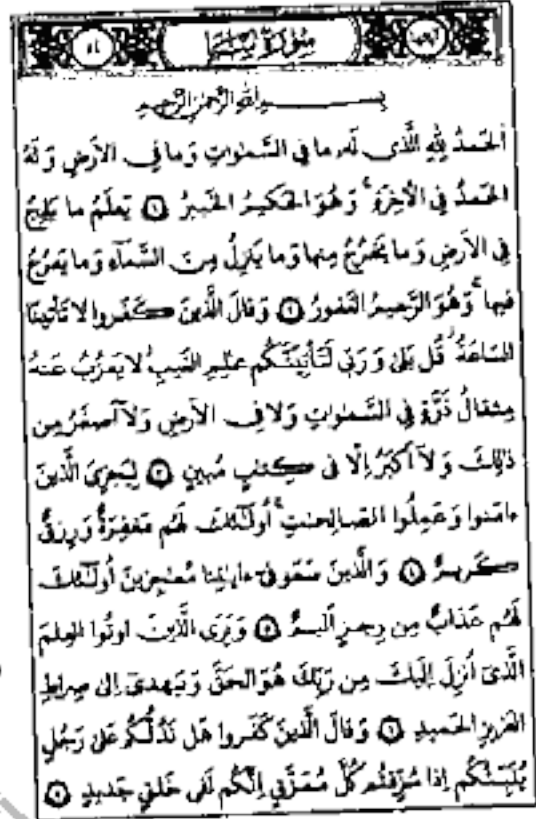 سُورَةُ سَبَإٍ ٥٤
بِسْمِ اللَّهِ الرَّحْمَٰنِ الرَّحِيمِ
الْحَمْدُ لِلَّهِ الَّذِي لَهُ مَا فِي السَّمَٰوَاتِ وَمَا فِي الْأَرْضِ وَلَهُ
الْحَمْدُ فِي الْآخِرَةِ ۚ وَهُوَ الْحَكِيمُ الْخَبِيرُ ١ يَعْلَمُ مَا يَلِجُ
فِي الْأَرْضِ وَمَا يَخْرُجُ مِنْهَا وَمَا يَنْزِلُ مِنَ السَّمَاءِ وَمَا يَعْرُجُ
فِيهَا ۚ وَهُوَ الرَّحِيمُ الْغَفُورُ ٢ وَقَالَ الَّذِينَ كَفَرُوا لَا تَأْتِينَا
السَّاعَةُ ۖ قُلْ بَلَىٰ وَرَبِّي لَتَأْتِيَنَّكُمْ عَٰلِمِ الْغَيْبِ ۖ لَا يَعْزُبُ عَنْهُ
مِثْقَالُ ذَرَّةٍ فِي السَّمَٰوَاتِ وَلَا فِي الْأَرْضِ وَلَا أَصْغَرُ مِنْ
ذَٰلِكَ وَلَا أَكْبَرُ إِلَّا فِي كِتَٰبٍ مُبِينٍ ٣ لِيَجْزِيَ الَّذِينَ
ءَامَنُوا وَعَمِلُوا الصَّٰلِحَٰتِ ۚ أُولَٰئِكَ لَهُمْ مَغْفِرَةٌ وَرِزْقٌ
كَرِيمٌ ٤ وَالَّذِينَ سَعَوْ فِي ءَايَٰتِنَا مُعَٰجِزِينَ أُولَٰئِكَ
لَهُمْ عَذَابٌ مِنْ رِجْزٍ أَلِيمٌ ٥ وَيَرَى الَّذِينَ أُوتُوا الْعِلْمَ
الَّذِي أُنْزِلَ إِلَيْكَ مِنْ رَبِّكَ هُوَ الْحَقَّ وَيَهْدِي إِلَىٰ صِرَٰطِ
الْعَزِيزِ الْحَمِيدِ ٦ وَقَالَ الَّذِينَ كَفَرُوا هَلْ نَدُلُّكُمْ عَلَىٰ رَجُلٍ
يُنَبِّئُكُمْ إِذَا مُزِّقْتُمْ كُلَّ مُمَزَّقٍ إِنَّكُمْ لَفِي خَلْقٍ جَدِيدٍ ٧